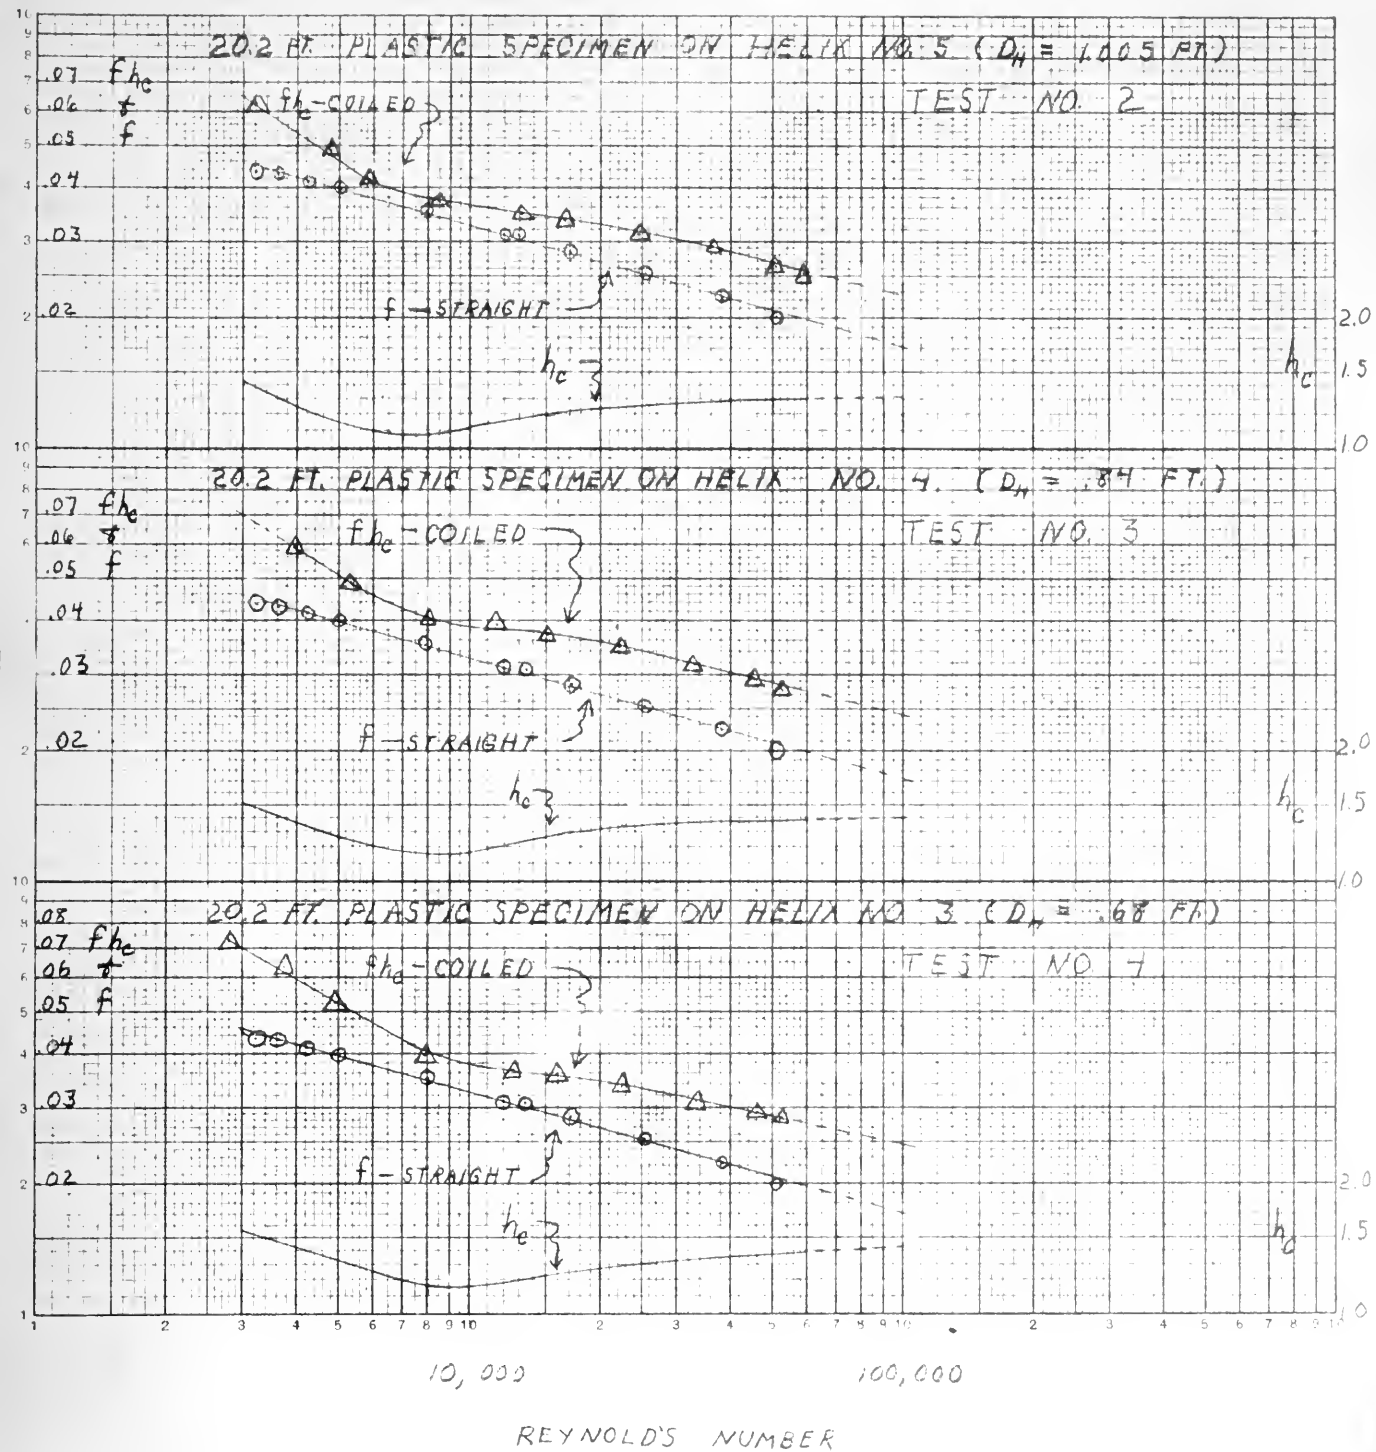 10
20.2 FT. PLASTIC SPECIMEN ON HELIX NO. 5 (D_H = 1.005 FT.)
TEST NO. 2
9
8
7
6
5
4
3
2
.07
.06
.05
.04
.03
.02
fh_c
&
f
fh_c-COILED
f-STRAIGHT
h_c
h_c
2.0
1.5
1.0
10
20.2 FT. PLASTIC SPECIMEN ON HELIX NO. 4. (D_H = .84 FT.)
TEST NO. 3
9
8
7
6
5
4
3
2
.07
.06
.05
.04
.03
.02
fh_c
&
f
fh_c-COILED
f-STRAIGHT
h_c
h_c
2.0
1.5
1.0
10
20.2 FT. PLASTIC SPECIMEN ON HELIX NO. 3 (D_H = .68 FT.)
TEST NO.
9
8
7
6
5
4
3
2
1
.08
.07
.06
.05
.04
.03
.02
fh_c
&
f
fh_c-COILED
f-STRAIGHT
h_c
h_c
2.0
1.5
1.0
1 2 3 4 5 6 7 8 9 10 2 3 4 5 6 7 8 9 10 2 3 4 5 6 7 8 9 10
10,000 100,000
REYNOLD'S NUMBER